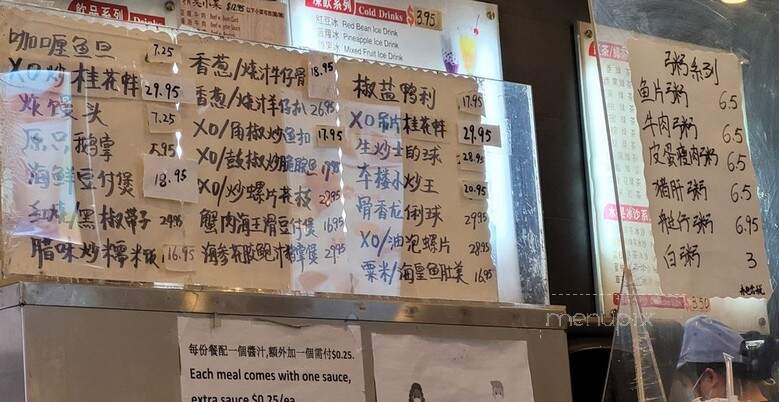 飲品系列
Cold Drinks
$3.95
紅豆冰 Red Bean Ice Drink
菠蘿冰 Pineapple Ice Drink
Mixed Fruit Ice Drink
咖喱鱼旦 7.25
XO炒桂花蚌 29.95
炸馒头 7.25
5.95
海鲜豆付煲 18.95
红烧/黑椒带子 29.95
腊味炒糯米饭 16.95
香葱/烧汁牛仔骨 18.95
香葱/烧汁羊仔扒 26.95
XO/角椒炒鱼扣 17.95
XO/鼓椒炒脆豚鱼
XO/炒螺片花枝
蟹肉海王滑豆付煲 16.95
海参花胶鲍汁鹅掌煲 29.95
椒盐鸭利 17.95
XO吊片桂花蚌 29.95
生炒士的球 28.95
车楼小炒王 20.95
骨香龙俐球 29.95
XO/油泡螺片 28.95
粟米/海皇鱼肚羹 16.95
粥系列
鱼片粥 6.5
牛肉粥 6.5
皮蛋瘦肉粥 6.5
猪肝粥 6.5
艇仔粥 6.95
白粥 3
$3.50
每份餐配一個醬汁,額外加一個需付$0.25.
Each meal comes with one sauce,
extra sauce $0.25/ea
menupix